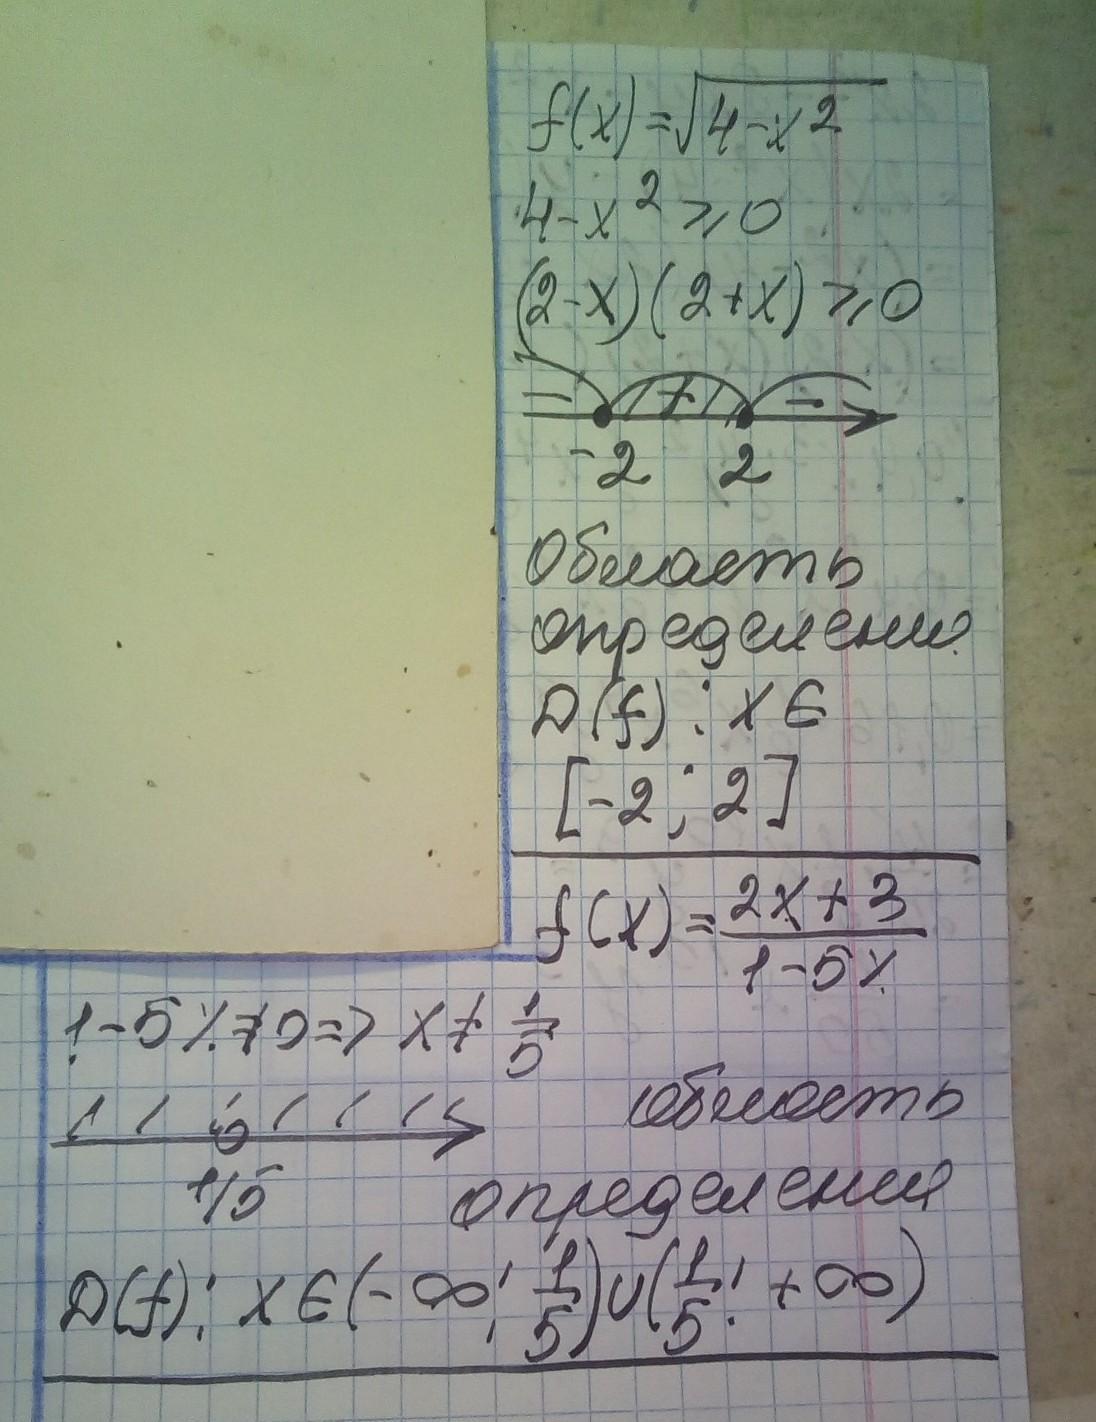 f(x)=√4-x²
4-x²⩾0
(2-x)(2+x)⩾0
- + -
-2 2
Область
определения
D(f): x∈
[-2; 2]
f(x)=(2x+3)/(1-5x)
1-5x≠0=> x≠1/5
1/5
область
определения
D(f): x∈(-∞; 1/5)∪(1/5; +∞)